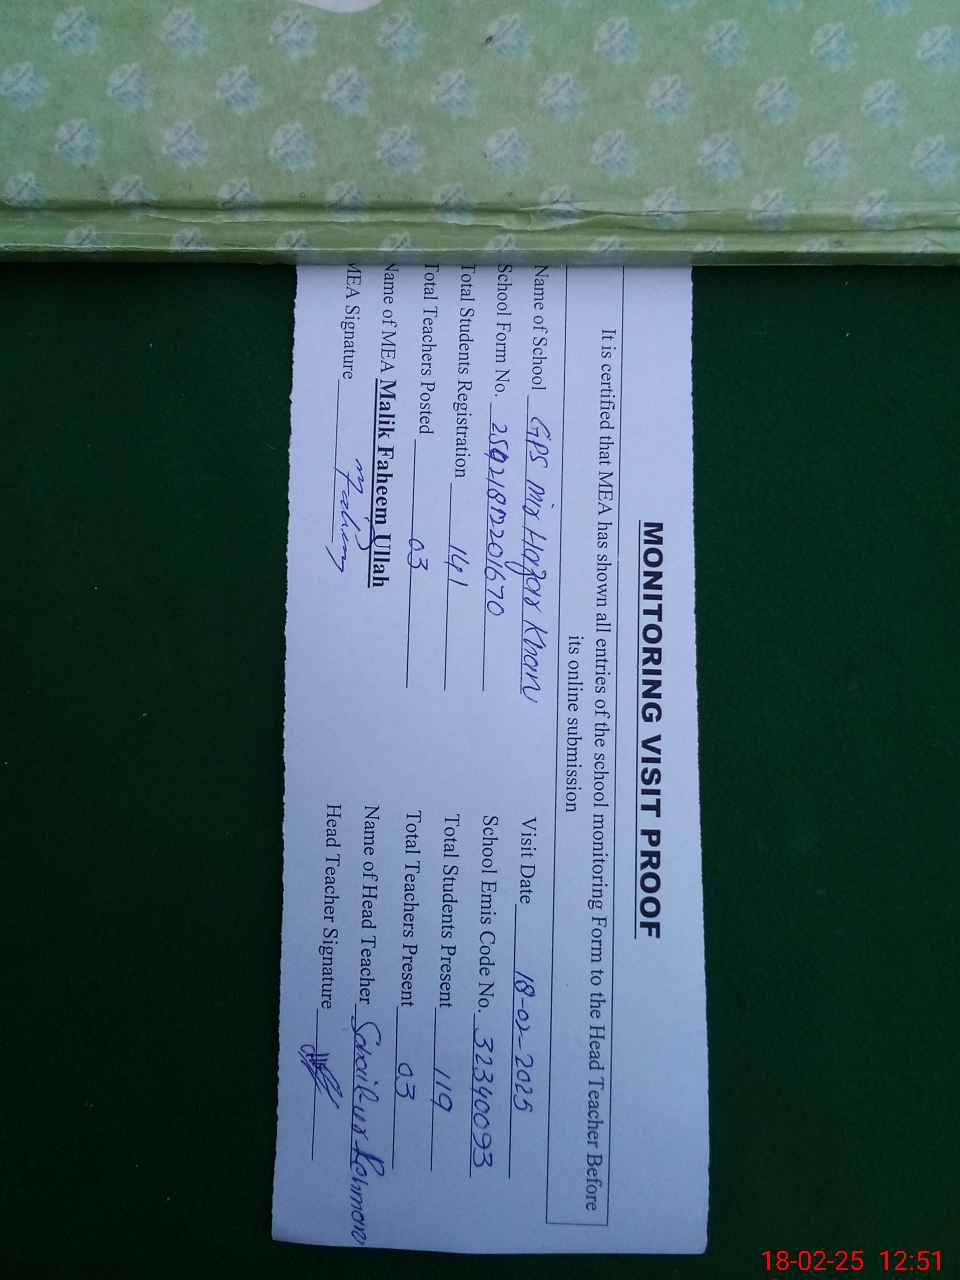 MONITORING VISIT PROOF
It is certified that MEA has shown all entries of the school monitoring Form to the Head Teacher Before
its online submission
Name of School GPS Mir Hazar Khan Visit Date 18-02-2025
School Form No. School Emis Code No. 32340093
Total Students Registration 141 Total Students Present 119
Total Teachers Posted 03 Total Teachers Present 03
Name of MEA Malik Faheem Ullah Name of Head Teacher Rehman
MEA Signature Head Teacher Signature
18-02-25 12:51